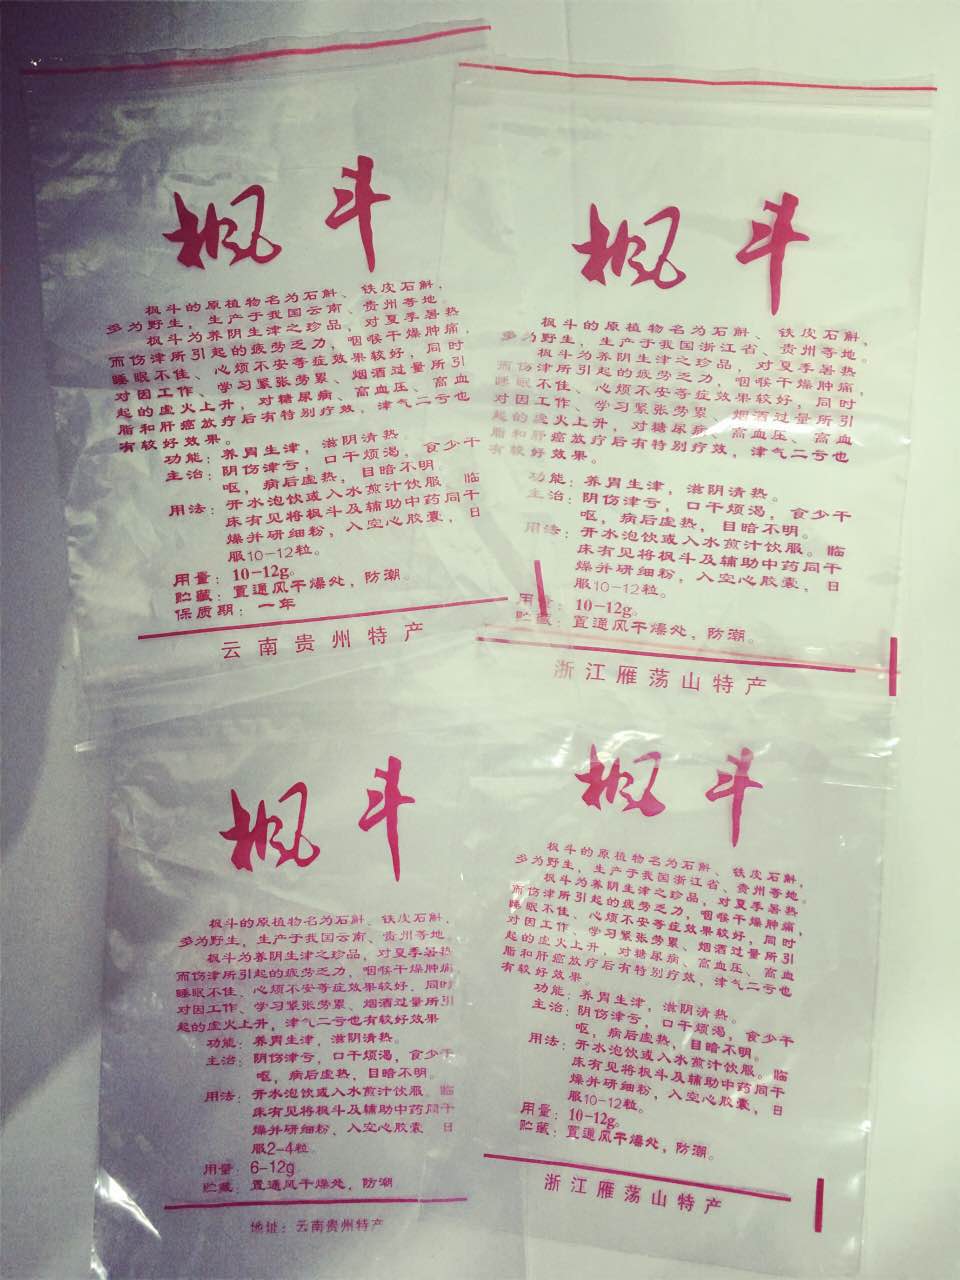 枫斗
枫斗的原植物名为石斛、铁皮石斛，
多为野生，生产于我国云南、贵州等地。
枫斗为养阴生津之珍品，对夏季暑热
而伤津所引起的疲劳乏力，咽喉干燥肿痛，
睡眠不佳、心烦不安等症效果较好，同时
对因工作、学习紧张劳累、烟酒过量所引
起的虚火上升，对糖尿病、高血压、高血
脂和肝癌放疗后有特别疗效，津气二亏也
有较好效果。
功能：养胃生津，滋阴清热。
主治：阴伤津亏，口干烦渴，食少干
呕，病后虚热，目暗不明。
用法：开水泡饮或入水煎汁饮服。临
床有见将枫斗及辅助中药同干
燥并研细粉，入空心胶囊，日
服10-12粒。
用量：10-12g。
贮藏：置通风干燥处，防潮。
保质期：一年
云南贵州特产
枫斗
枫斗的原植物名为石斛、铁皮石斛，
多为野生，生产于我国浙江省、贵州等地。
枫斗为养阴生津之珍品，对夏季暑热
而伤津所引起的疲劳乏力，咽喉干燥肿痛，
睡眠不佳、心烦不安等症效果较好，同时
对因工作、学习紧张劳累、烟酒过量所引
起的虚火上升，对糖尿病、高血压、高血
脂和肝癌放疗后有特别疗效，津气二亏也
有较好效果。
功能：养胃生津，滋阴清热。
主治：阴伤津亏，口干烦渴，食少干
呕，病后虚热，目暗不明。
用法：开水泡饮或入水煎汁饮服。临
床有见将枫斗及辅助中药同干
燥并研细粉，入空心胶囊，日
服10-12粒。
用量：10-12g。
贮藏：置通风干燥处，防潮。
浙江雁荡山特产
枫斗
枫斗的原植物名为石斛、铁皮石斛，
多为野生，生产于我国云南、贵州等地。
枫斗为养阴生津之珍品，对夏季暑热
而伤津所引起的疲劳乏力，咽喉干燥肿痛，
睡眠不佳、心烦不安等症效果较好，同时
对因工作、学习紧张劳累、烟酒过量所引
起的虚火上升，津气二亏也有较好效果
功能：养胃生津，滋阴清热。
主治：阴伤津亏，口干烦渴，食少干
呕，病后虚热，目暗不明。
用法：开水泡饮或入水煎汁饮服。临
床有见将枫斗及辅助中药同干
燥并研细粉、入空心胶囊 日
服2-4粒。
用量：6-12g
贮藏：置通风干燥处，防潮
地址：云南贵州特产
枫斗
枫斗的原植物名为石斛、铁皮石斛，
多为野生，生产于我国浙江省、贵州等地。
枫斗为养阴生津之珍品，对夏季暑热
而伤津所引起的疲劳乏力，咽喉干燥肿痛，
睡眠不佳、心烦不安等症效果较好，同时
对因工作、学习紧张劳累、烟酒过量所引
起的虚火上升，对糖尿病、高血压、高血
脂和肝癌放疗后有特别疗效，津气二亏也
有较好效果。
功能：养胃生津，滋阴清热。
主治：阴伤津亏，口干烦渴，食少干
呕，病后虚热，目暗不明。
用法：开水泡饮或入水煎汁饮服。临
床有见将枫斗及辅助中药同干
燥并研细粉，入空心胶囊，日
服10-12粒。
用量：10-12g。
贮藏：置通风干燥处，防潮。
浙江雁荡山特产